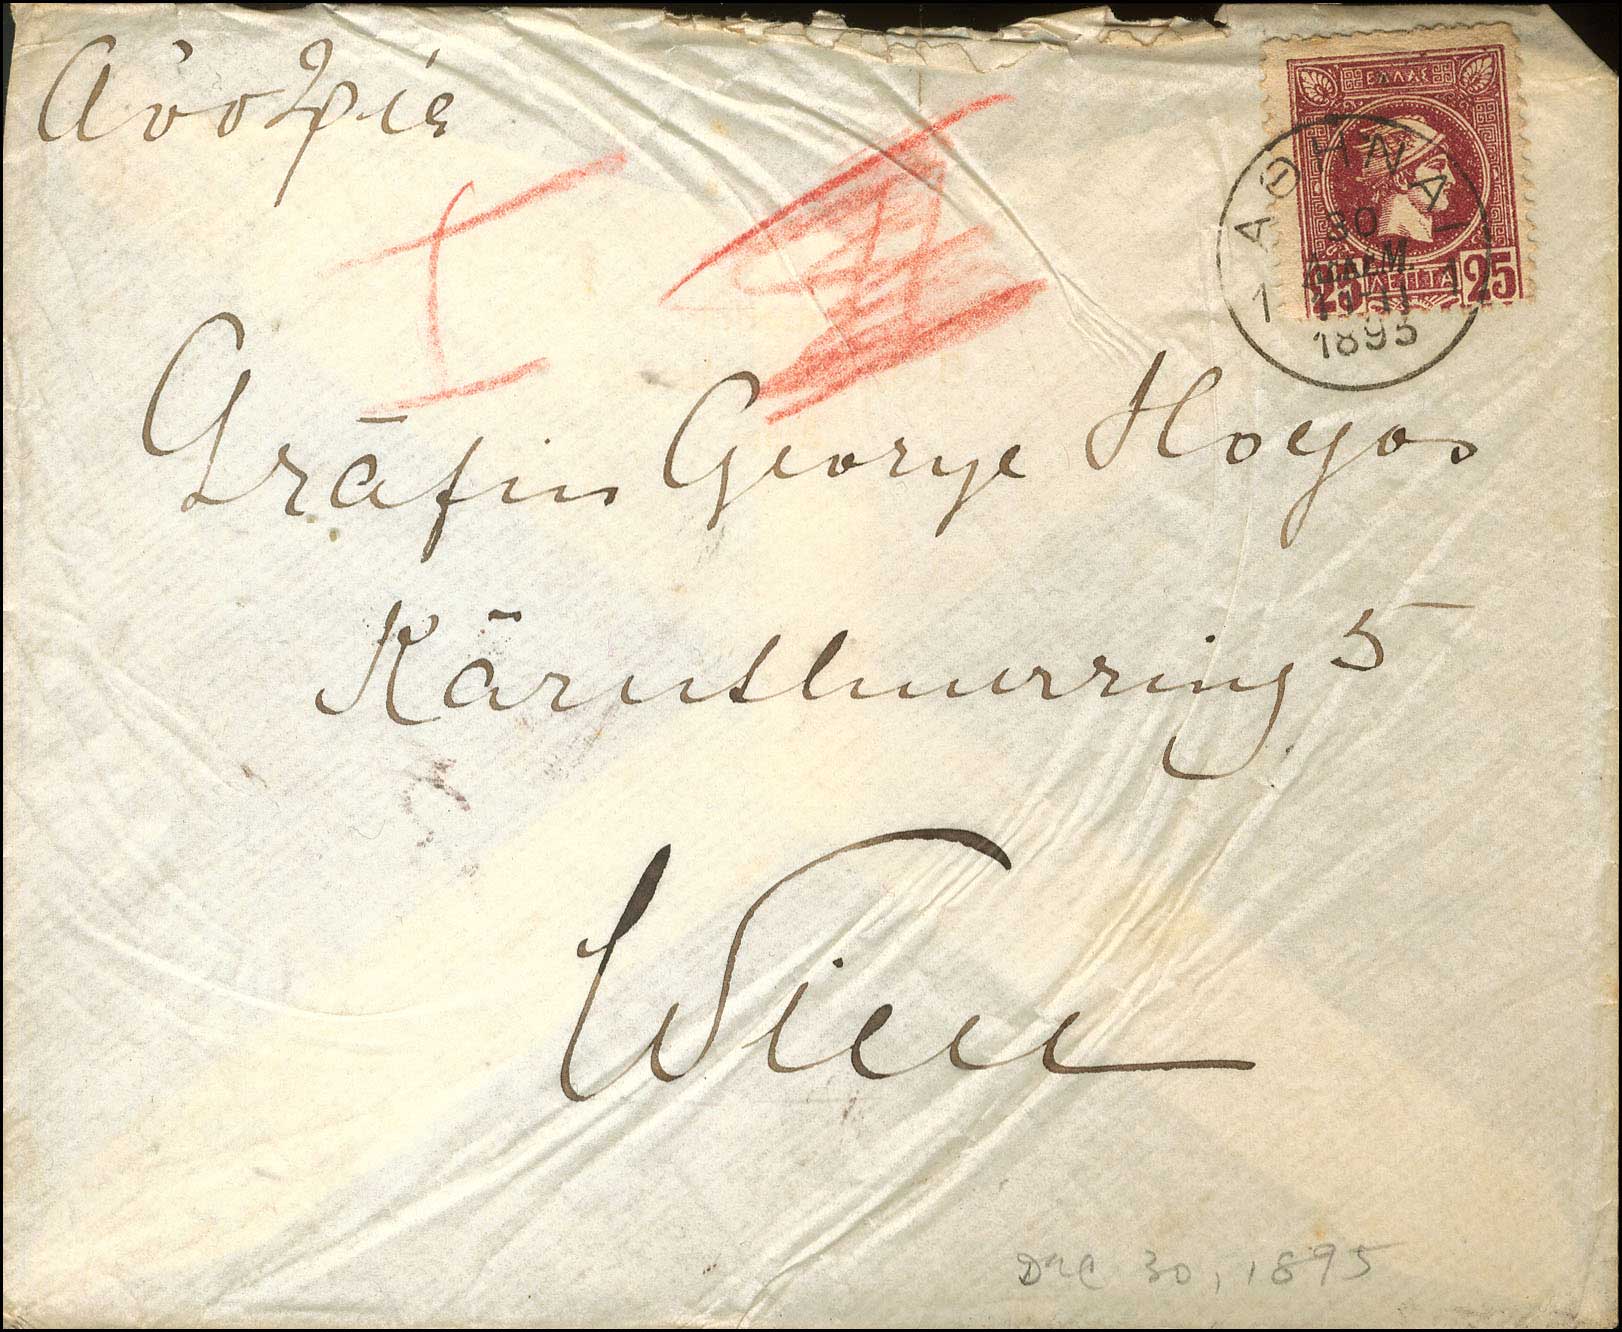 Αυστρία
I
ΕΛΛΑΣ
25 ΛΕΠΤΑ 25
ΑΘΗΝΑΙ
1 1
30
ΔΕΚΕΜ.
1895
Gräfin George Hoyos
Kärnthnerring 5
Wien
Dec 30, 1895